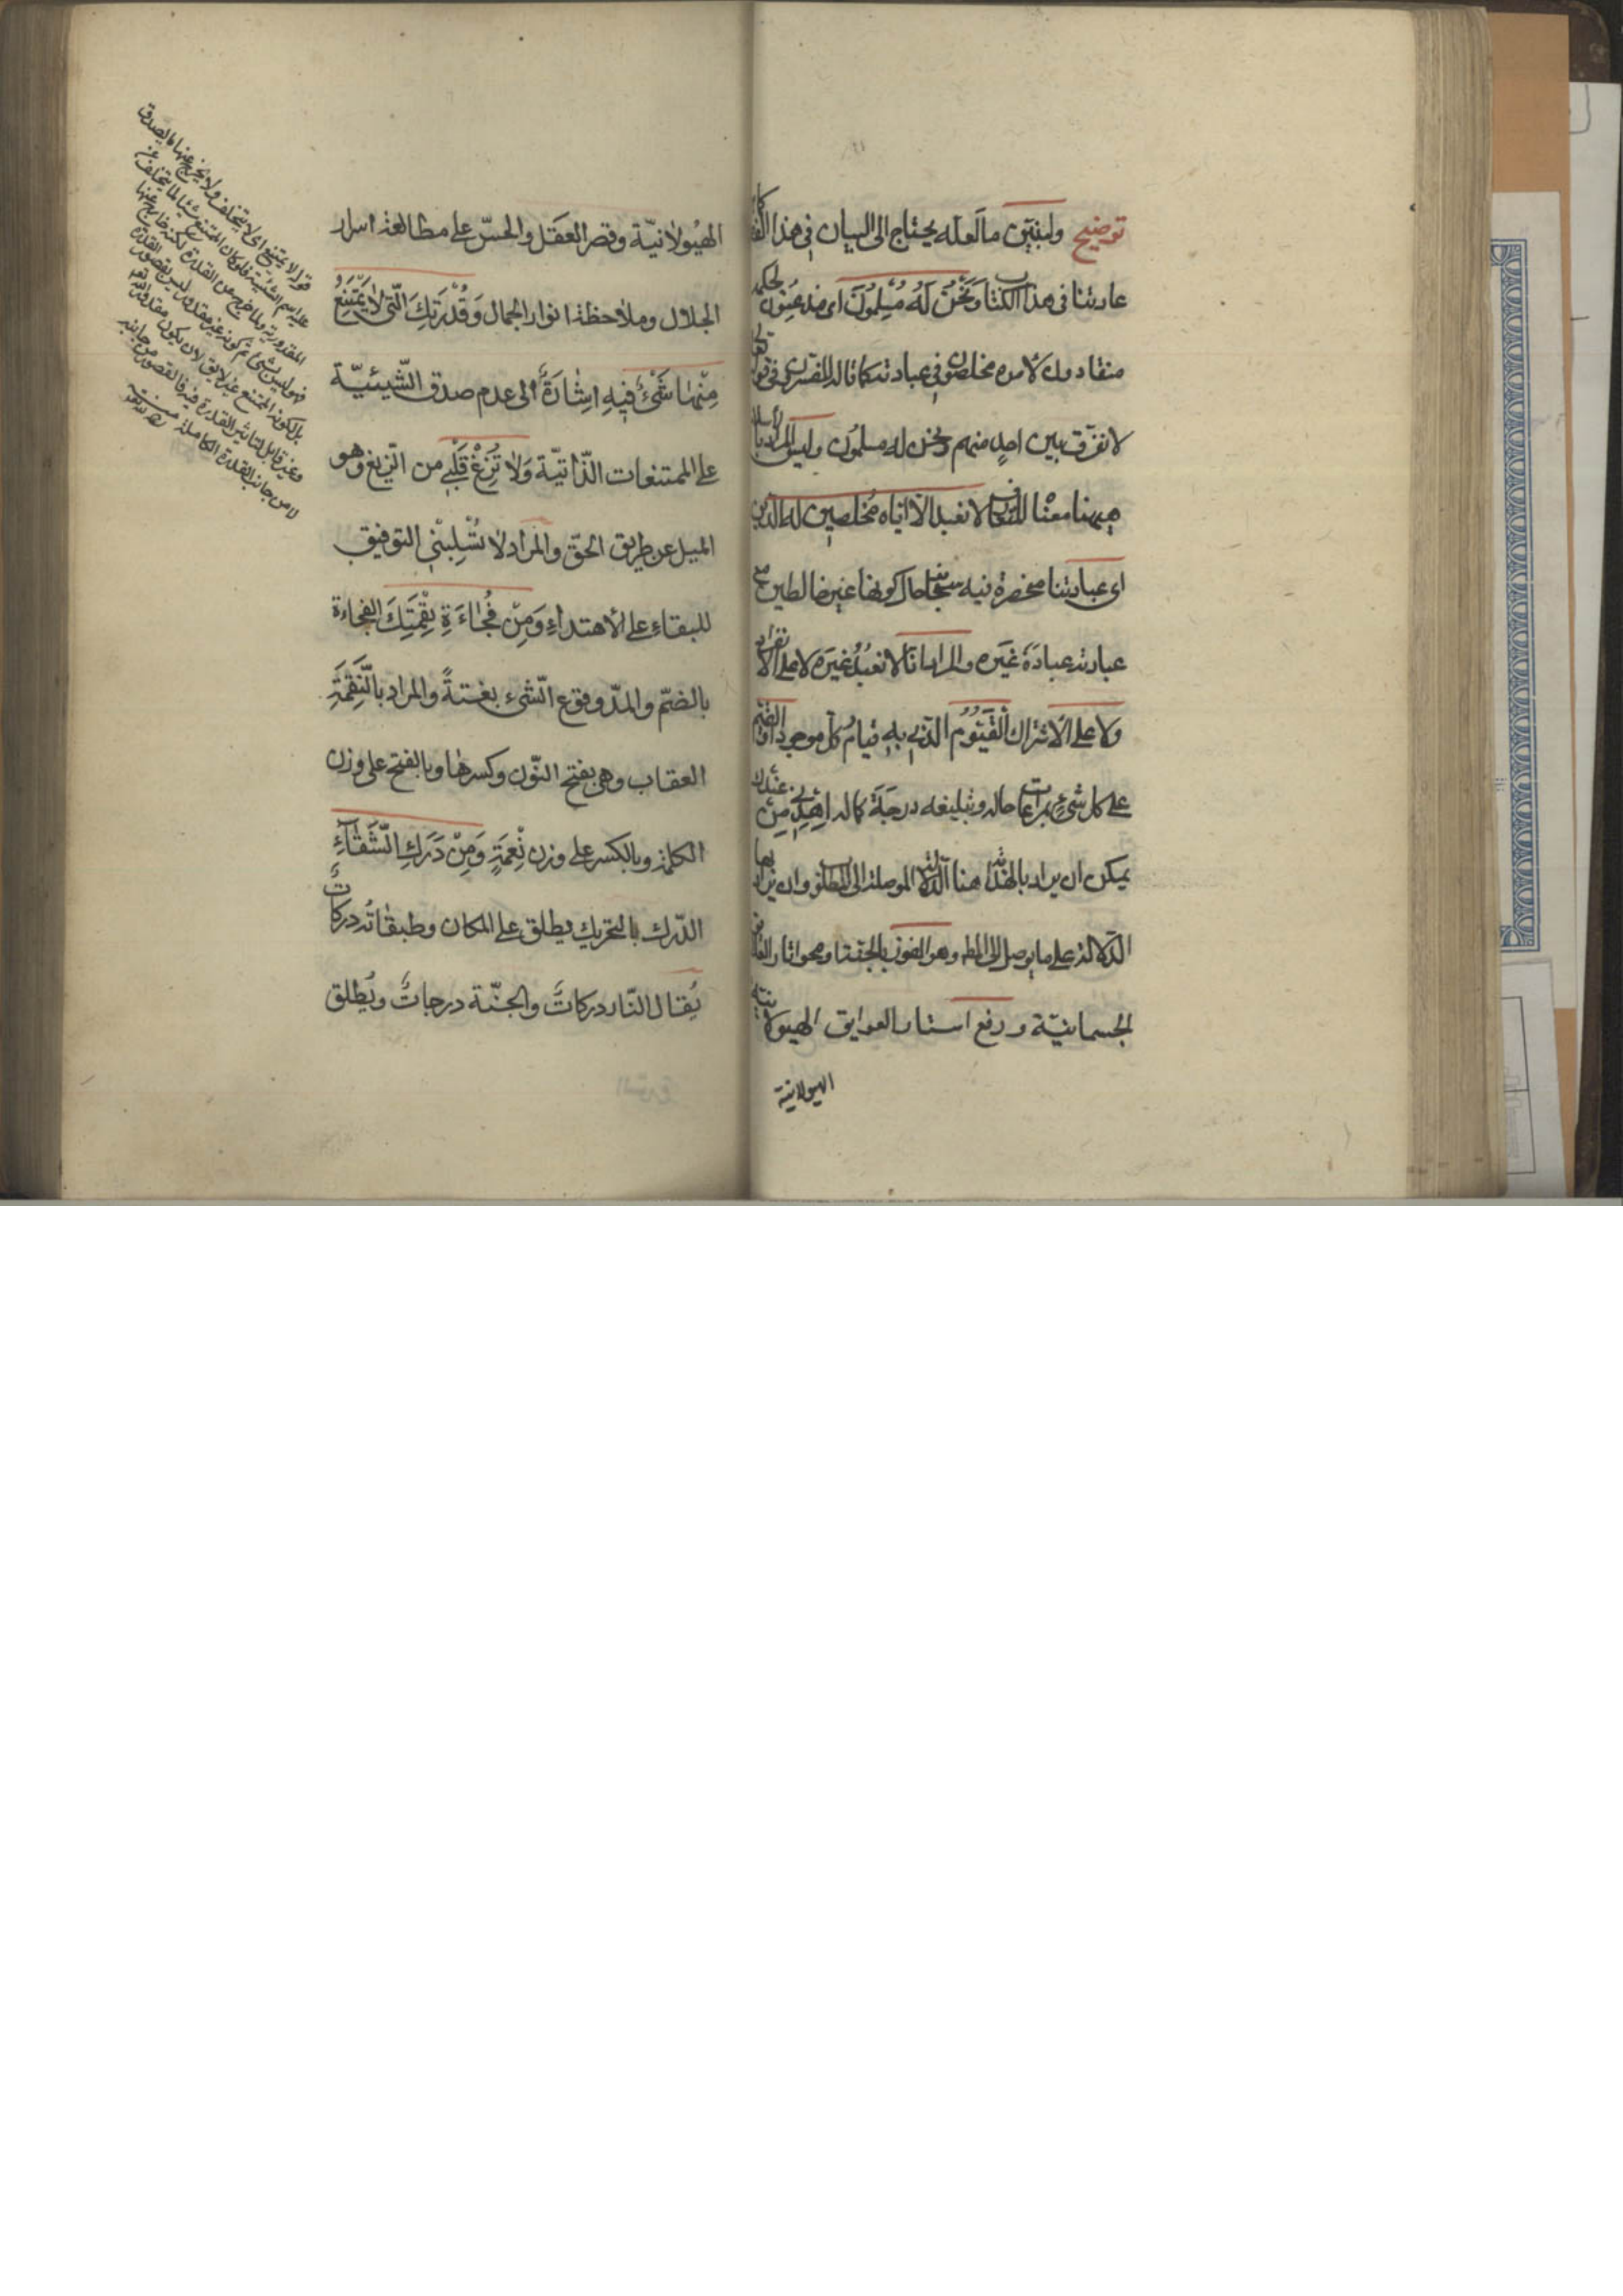 توضيح ولنبين ما لعله يحتاج الى البيان فى هذا
عادتنا فى هذا الكتاب وَنَحْنُ لَهُ مُسْلِمُونَ اى مذعنون لحكمه
منقادون لامره مخلصون فى عبادته كما قاله المفسرون فى قوله تعالى
لا نفرّق بين احدٍ منهم ونحن له مسلمون وليس المراد بالاسلام
ههنا معناه لا نعبد الّا ايّاه مُخلصين له الدين
اى عبادتنا منحصرة فيه سبحانه حال كوننا غير خالطين مع
عبادته عبادَة غيَره والمراد انّا لا نعبُدُ غيَره لا على الانفراد
ولا على الاشتراك القَيّوُم الّذى به قيامُ كلّ موجود او القيّم
على كل شىءٍ بمراعات حاله وتبليغه درجَة كماله اِهْدِنِى مِنْ عِنْدِكَ
يمكن ان يراد بالهداية هنا الدلالة الموصلة الى المطلوب وان يراد بها
الدّلالة على ما يوصل الى المط وهو الفوز بالجنّة ومحو اثار
الجسمانيّة ورفع استار العوايق الهيولانية
الهيولانية
الهيُولانيّة وقصر العقَل والحسّ على مطالعة اسرار
الجلال وملاحظة انوار الجمال وَقُدْرَتِكَ الّتى لا يَمْتَنِعُ
مِنْهٰا شَىْءٌ فيه اشٰارَةٌ الى عدم صدق الشّيئيّة
على الممتنعات الذّاتيّة وَلٰا تُزِغْ قَلْبى من الزيغ وهو
الميل عن طريق الحقّ والمراد لا تسْلِبْنى التوفيق
للبقاءِ على الأهتداءِ وَمِنْ فُجٰاءَةِ نِقْمَتِكَ الفجاءة
بالضمّ والمدّ وقوع الشّىء بغتةً والمراد بالنّقمَةِ
العقاب وهى بفتح النّون وكسرها وبالفتح على وزن
الكلمة وبالكسر على وزن نِعمَةٍ وَمِنْ دَرَكِ الشَّقٰآءِ
الدّرك بالتحريك يطلق على المكان وطبقاتُه دركاتٌ
يُقال النّار دركاتٌ والجنّة درجاتٌ ويُطلق
قوله لا يمتنع اى لا يتخلف ولا يخرج عنها ما يصدق
عليه اسم الشيئية فلو كان الممتنع شيئا لما تخلف عن
المقدورية ولما خرج عن القدرة لكنه خارج عنها
فهو ليس بشىء ثم كونه غير مقدور ليس لقصور القدرة
بل لكونه الممتنع غير لايق لان يكون مقدورا
وغير قابل لتاثير القدرة فيه فالقصور من جانبه
لا من جانب القدرة الكاملة منه